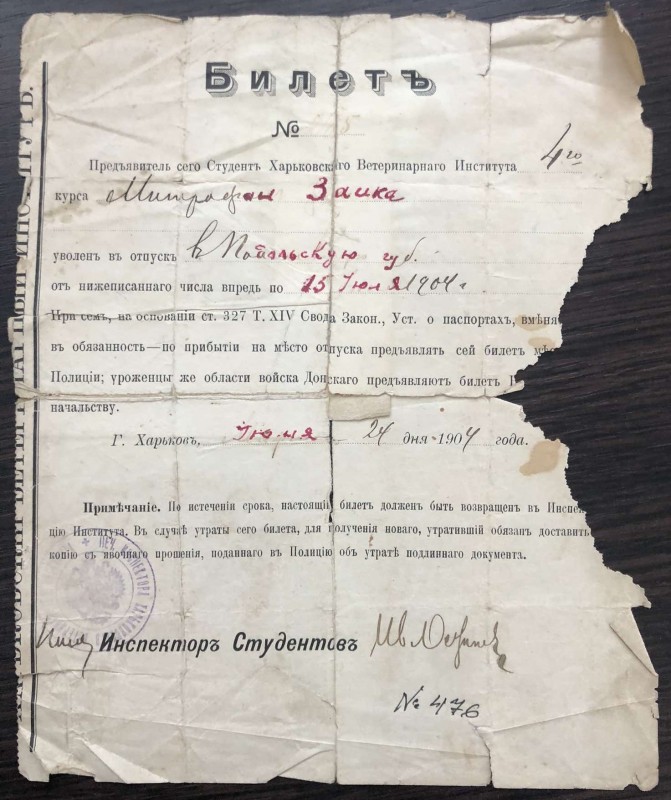 Билетъ
№
Предъявитель сего Студентъ Харьковскаго Ветеринарнаго Института 4го
курса Митрофан Заика
уволенъ въ отпускъ в Подольскую губ.
отъ нижеписаннаго числа впредь по 15 Июля 1904 г.
При семъ, на основаніи ст. 327 Т. XIV Свода Закон., Уст. о паспортахъ, вмѣня
въ обязанность—по прибытіи на мѣсто отпуска предъявлять сей билетъ
Полиціи; уроженцы же области войска Донскаго предъявляютъ билетъ
начальству.
Г. Харьковъ, 24 дня 1904 года.
Примѣчаніе. По истеченіи срока, настоящій билетъ долженъ быть возвращенъ въ Инспек
цію Института. Въ случаѣ утраты сего билета, для полученія новаго, утратившій обязанъ доставить
копію съ явочнаго прошенія, поданнаго въ Полицію объ утратѣ подлиннаго документа.
Инспекторъ Студентовъ
№ 476